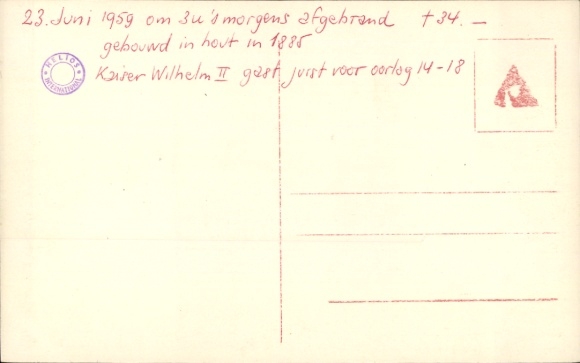 23. Juni 1959 om 3u 's morgens afgebrand † 34. —
gebouwd in hout in 1885
Kaiser Wilhelm II gast juist voor oorlog 14-18
HELIOS
INTERNATIONAL